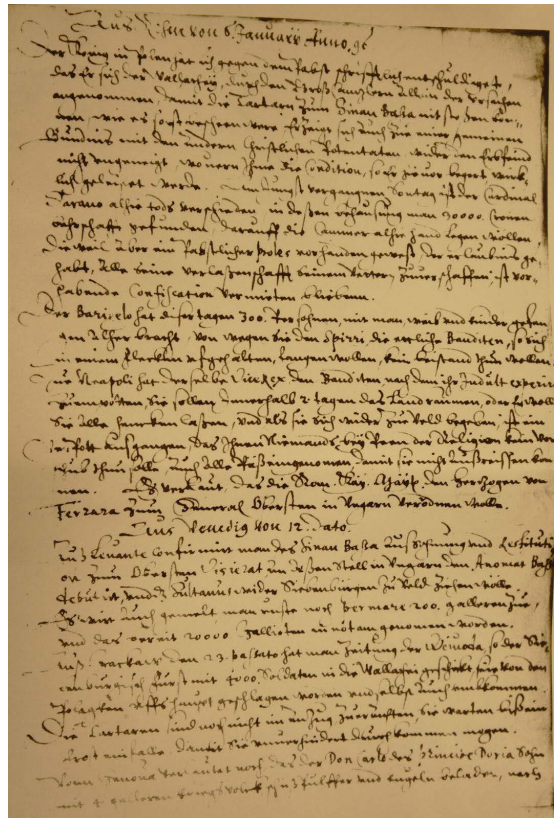 Aus Rhom von 6. Januarii Anno. 96
Der König in Polen hat sich gegen dem Pabst schrifftlich entschuldiget,
das Er sich der Wallachey, durch den Gros Cantzlern allein der Ursachen
angenommen, damit die Tartarn zum Sinan Bassa nit stossen kon-
nen, wie es sonst geschehen were. Erzeigt sich auch zu einer gemeinen
Bündnis mit den andern christlichen Potentaten wider den Erbfeind
nicht ungeneigt, wouern Ihme die Condition, so er zuuor begert, wirk-
lich geleistet werde. vergangnen Sontag ist der Cardinal
alhie tods verschieden, in dessen behausung man 30000. Cronen
Barschafft gefunden, darauff die Cammer alhie hand legen wollen,
Dieweil aber ein Pabstlicher vorhanden gewest, der erlaubnus ge-
habt, alle seine verlassenschafft seinem Vettern zuuerschaffen, ist vor-
habende Confiscation vermitten blieben.
Der Barisello hat diser tagen 300. Personen, mit man, weib und kinder, gefan-
gen alher bracht, von wegen Sie den Spirri, die etliche Banditen, so sich
in einem flecken auffgehalten, fangen wollen, kein beistand thun wollen.
Zu Neapoli hat derselbe Vice Rex den Banditen nach dem ihr Indult
Sie sollen Innerhalb 2 tagen das Land raumen, oder Er woll
Sie alle hencken lassen, und als sie sich wider zu Veld begeben, ist ein
ausgangen, das Ihnen Niemands bey Peen der Rebellion kein vor-
schub thun solle, auch alle Päss eingenomen, damit sie nicht ausreissen kon-
nen. Es verlaut, das die Rom. Kay. Mayt. den Hertzogen von
Ferrara zum General Obersten in Ungern verordnen wolle.
Aus Venedig von 12. dato.
Aus Levante Confirmirt man des Sinan Bassa und Restituti-
on zum Obersten Visierat, an dessen Stell in Ungarn den Bassa
und der Sultanus wider Siebenbürgen zu Veld ziehen wolle.
Es wirt auch gemelt, man rüste noch 200. galleren zu,
und das bereit 20000 Gallioten in nötam genommen worden.
Aus Krackaw den 23. passato hat man Zeitung, der Weiwoda, so der Sie-
benburgisch fürst mit 4000. Soldaten in die Wallachei geschickt, sey von den
Polagken auffs haupt geschlagen worden und selbst auch umbkommen.
Die Tartaren sind noch nicht im anzug zuerkunfften, sie warten biss ein
frost einfalle, damit Sie unuerhindert durchkommen mogen.
Vonn Genoua verlautet noch das der Don Carlo des Princi. Doria Sohn
mit 4 galleren kriegs volck, puluffer und kugeln beladen, nach